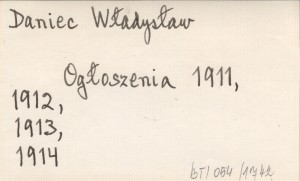 Daniec Władysław
Ogłoszenia 1911,
1912,
1913,
1914
GTI 054 /1742